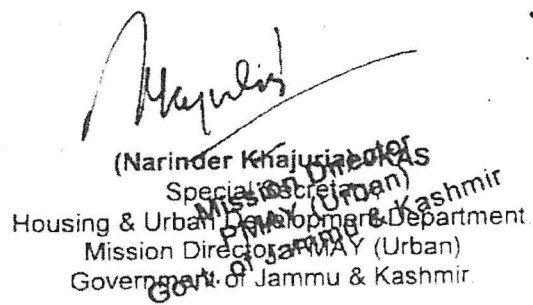 Khajuria
(Narinder Khajuria) JKAS
Special Secretary
Housing & Urban Development Department
Mission Director PMAY (Urban)
Government of Jammu & Kashmir.
Mission Director
PMAY (Urban)
Govt. of Jammu & Kashmir